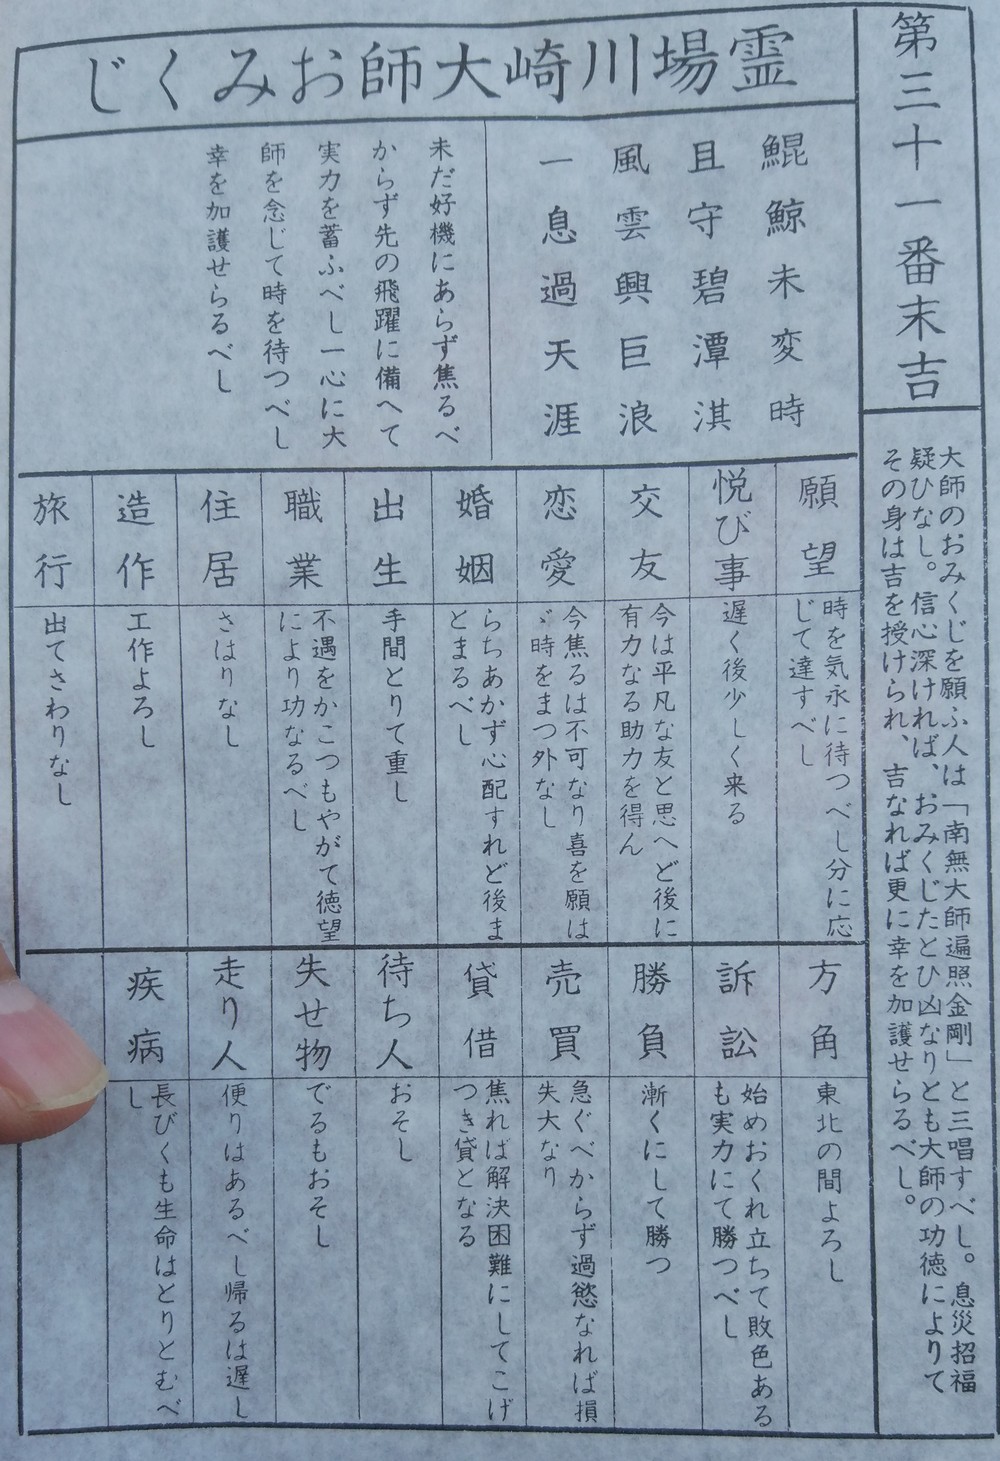 第三十一番末吉
大師のおみくじを願ふ人は「南無大師遍照金剛」と三唱すべし。息災招福
疑ひなし。信心深ければ、おみくじたとひ凶なりとも大師の功徳によりて
その身は吉を授けられ、吉なれば更に幸を加護せらるべし。
霊場川崎大師おみくじ
鯤鯨未変時
且守碧潭淇
風雲興巨浪
一息過天涯
未だ好機にあらず焦るべ
からず先の飛躍に備へて
実力を蓄ふべし一心に大
師を念じて時を待つべし
幸を加護せらるべし
願望
時を気永に待つべし分に応
じて達すべし
悦び事
遅く後少しく来る
交友
今は平凡な友と思へど後に
有力なる助力を得ん
恋愛
今焦るは不可なり喜を願は
ゞ時をまつ外なし
婚姻
らちあかず心配すれど後ま
とまるべし
出生
手間とりて重し
職業
不遇をかこつもやがて徳望
により功なるべし
住居
さはりなし
造作
工作よろし
旅行
出てさわりなし
方角
東北の間よろし
訴訟
始めおくれ立ちて敗色ある
も実力にて勝つべし
勝負
漸くにして勝つ
売買
急ぐべからず過慾なれば損
失大なり
貸借
焦れば解決困難にしてこげ
つき貸となる
待ち人
おそし
失せ物
でるもおそし
走り人
便りはあるべし帰るは遅し
疾病
長びくも生命はとりとむべ
し